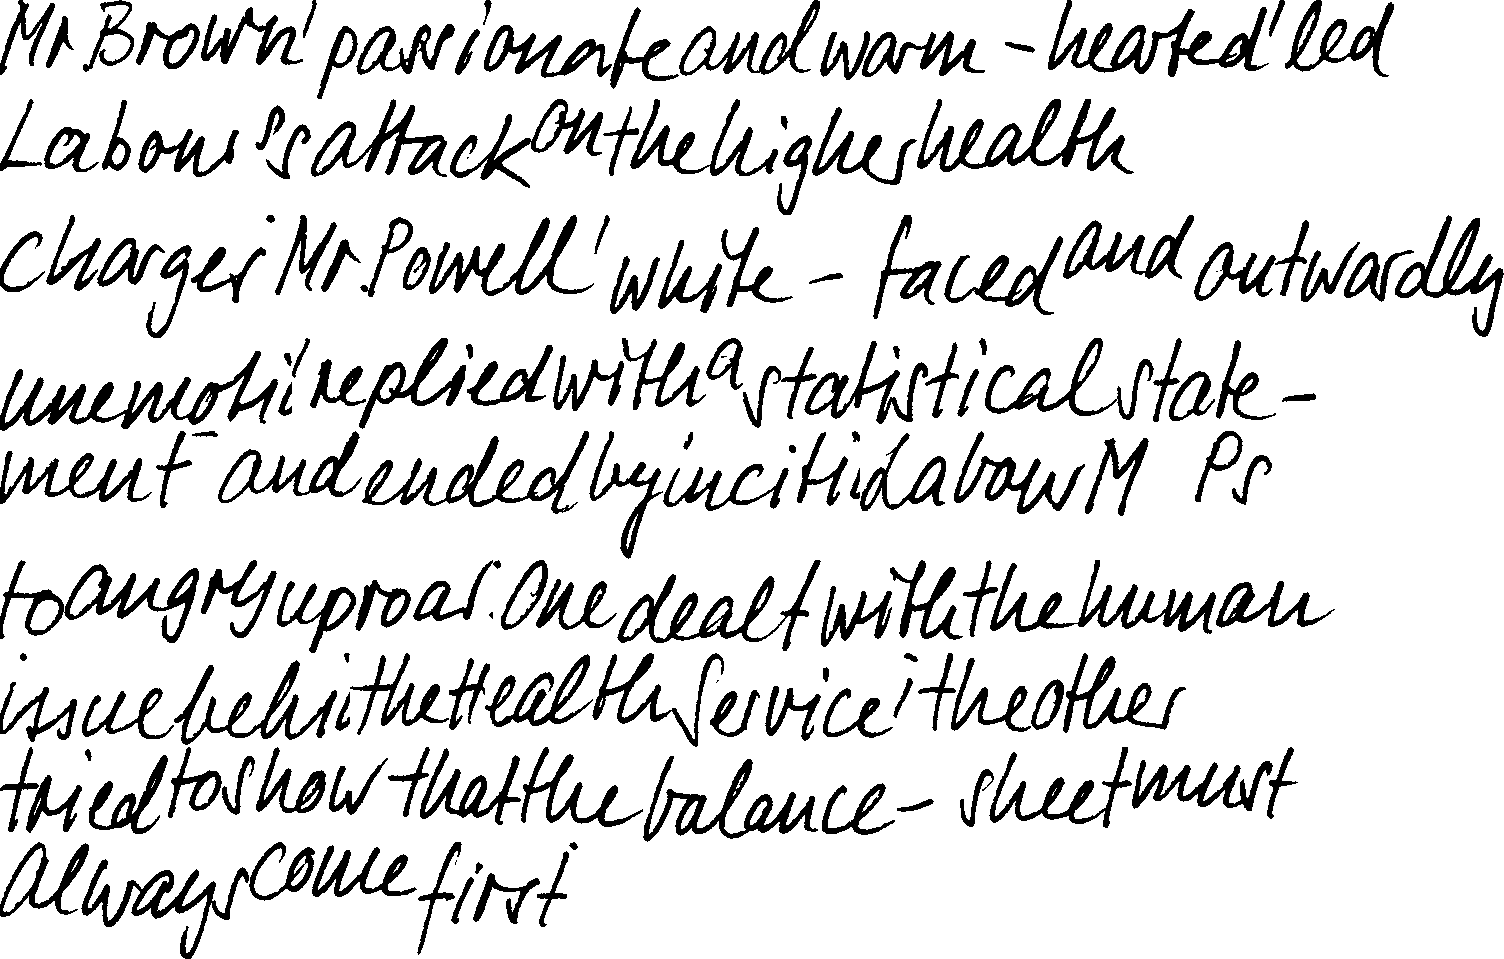 Mr. Brown, passionate and warm-hearted, led
Labour's attack on the higher health
charges. Mr. Powell, white-faced and outwardly
unemoti, replied with a statistical state-
ment - and ended by inciti Labour M Ps
to angry uproar. One dealt with the human
issue behi the Health Service; the other
tried to show that the balance-sheet must
always come first